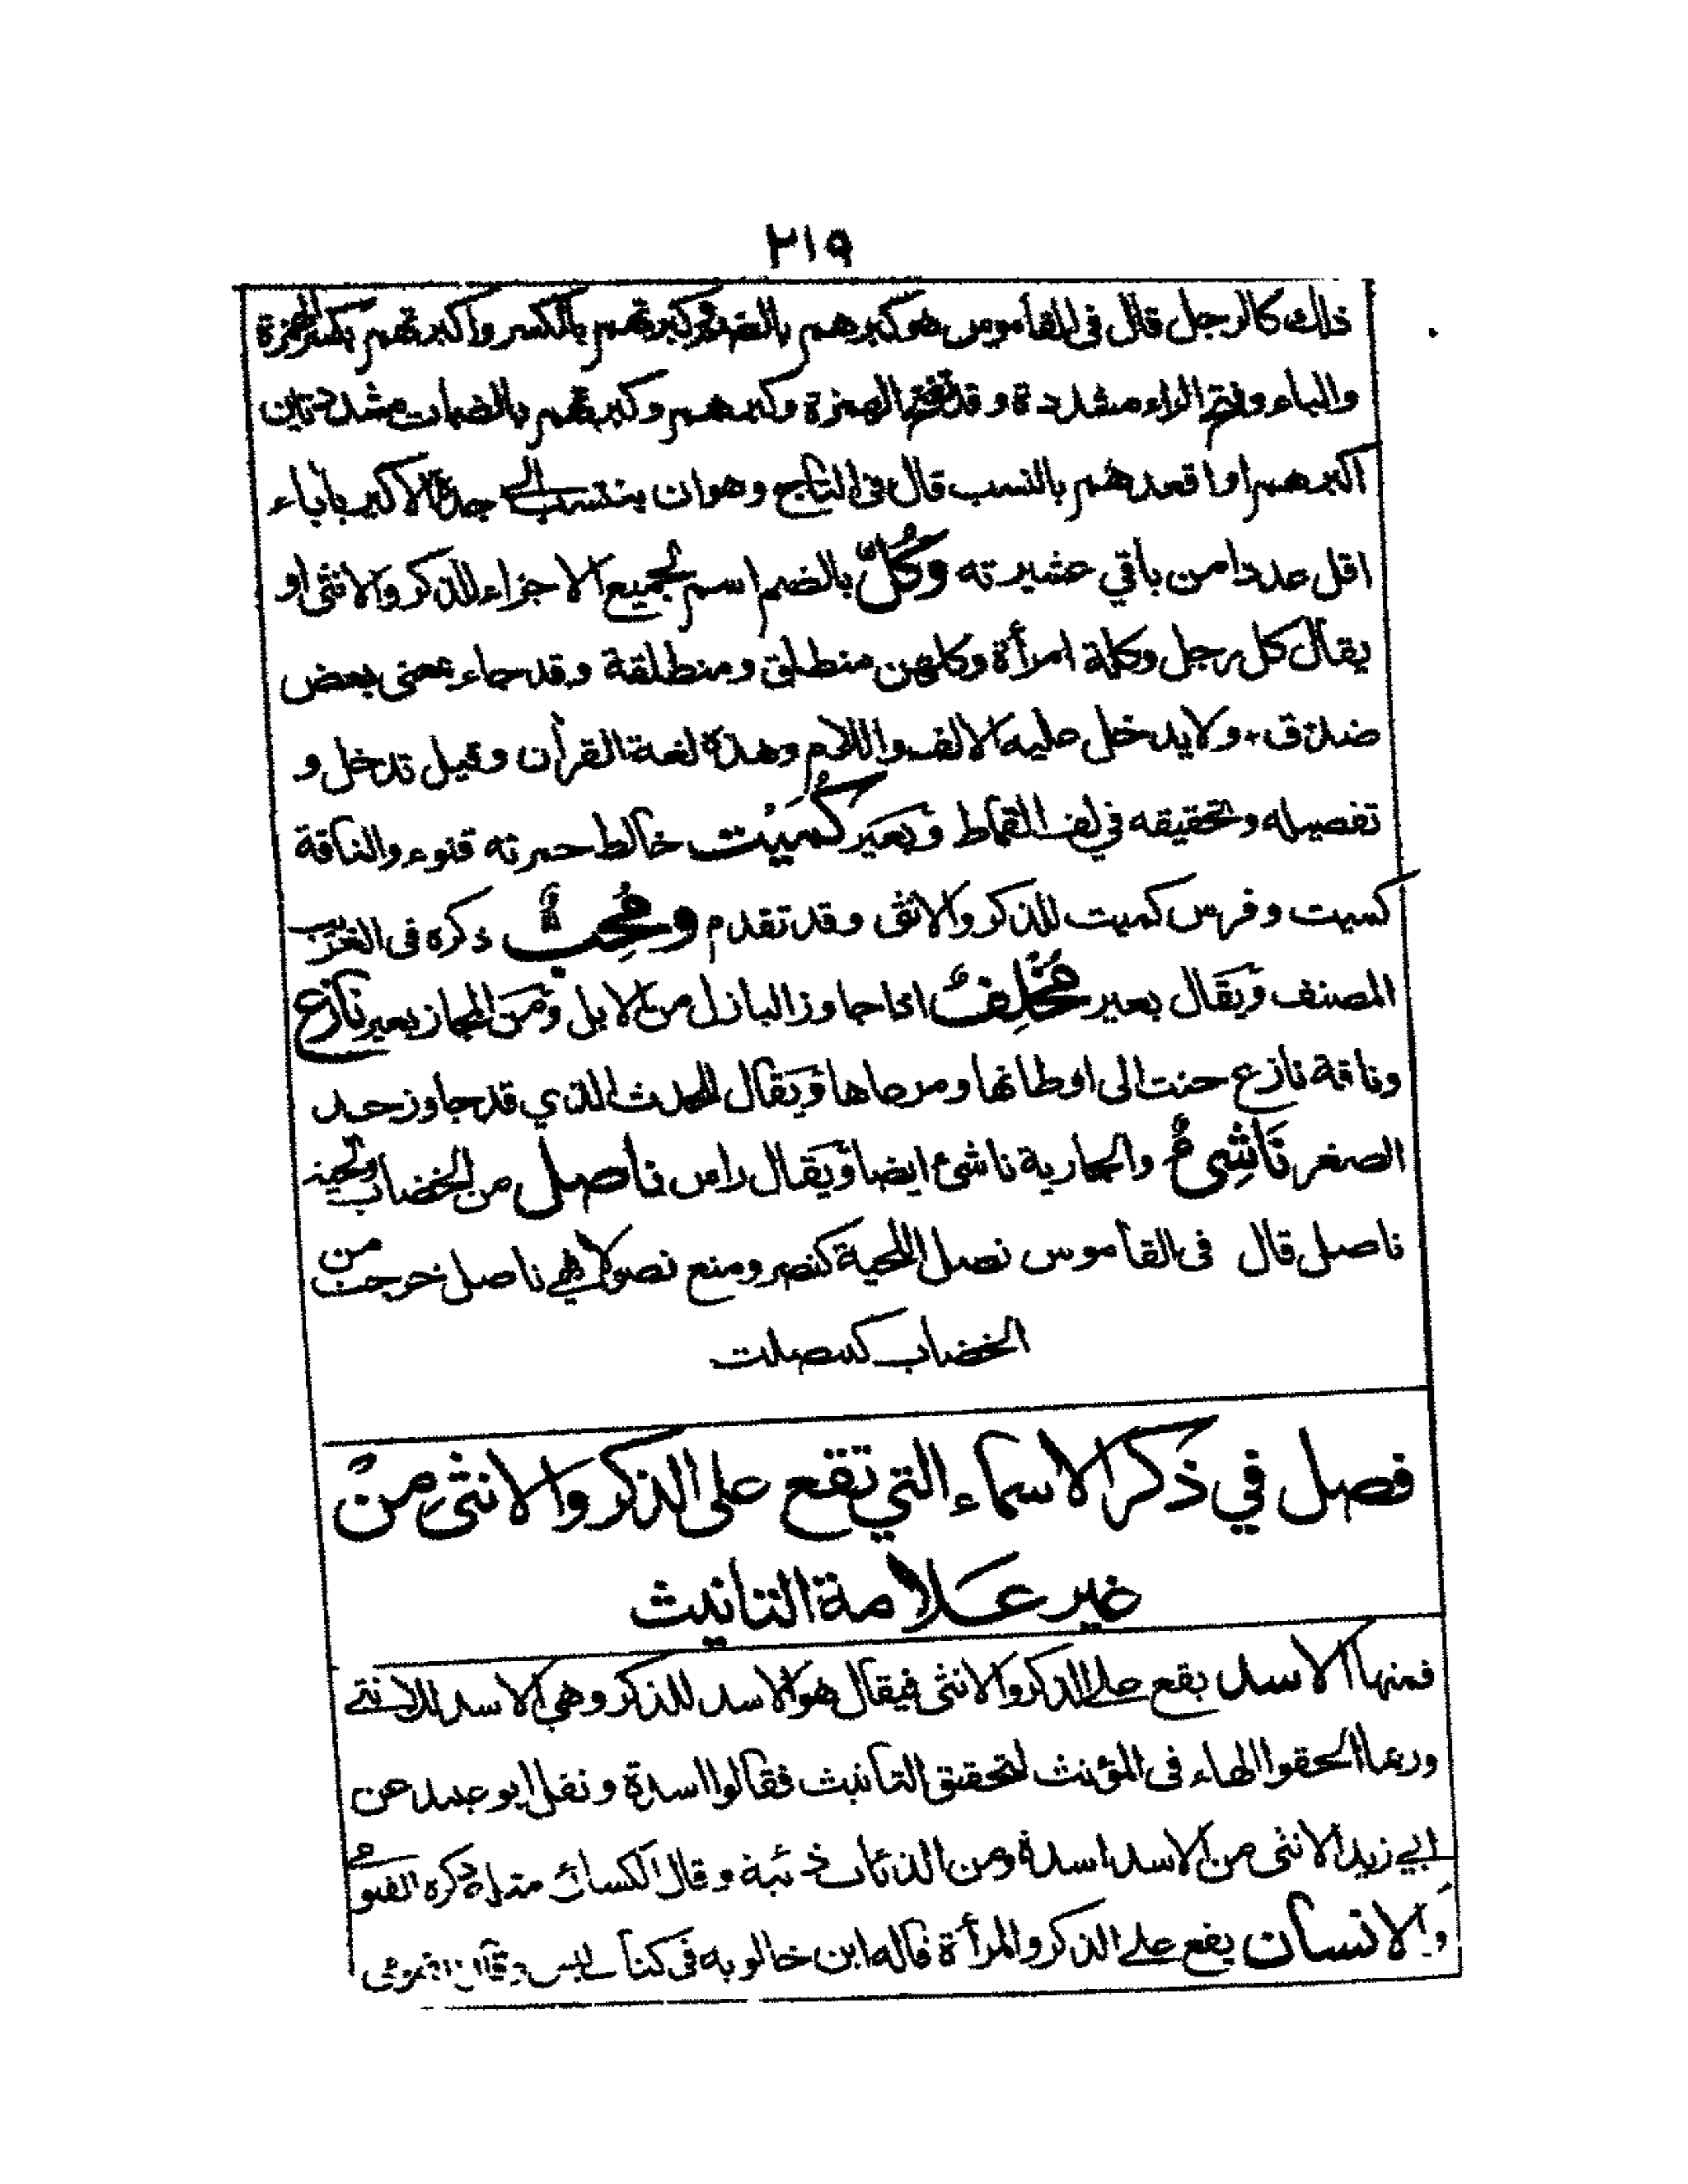 ٢١٩
ذلك كالرجل قال في القاموس هو كبرهم بالضم وكبرتهم بالكسر واكبرتهم بكسر الهمزة
والباء وفتح الراء مشددة وقد تفتح الهمزة وكبرهم وكبرتهم بالضمات مشددتين
اكبرهم او اقعدهم بالنسب قال في التاج وهو ان ينتسب الى جده الاكبر بآباء
اقل عددا من باقي عشيرته وَكُلٌّ بالضم اسم لجميع الاجزاء للذكر والانثى او
يقال كل رجل وكلة امرأة وكلهن منطلق ومنطلقة وقد جاء بمعنى بعض
ضد ق، ولا يدخل عليه الالف واللام وهذه لغة القرأن وقيل تدخل و
تفصيله وتحقيقه في لف القماط وَبعَير كُمَيْت خالط حمرته قنوء والناقة
كميت وفرس كميت للذكر والانثى وقد تقدم ومُحِبٌّ ذكره في الغريب
المصنف وَيقال بعير مُخْلِفٌ اذا جاوز البازل من الابل وَمن المجاز بعير نازع
وناقة نازع حنت الى اوطانها ومرعاها وَيقال للحدث الذي قد جاوز حد
الصغر نَاشِئٌ والجارية ناشئ ايضا وَيقال راس ناصل من الخضاب ولحية
ناصل قال في القاموس نصل اللحية كنصر ومنع نصولا فهي ناصل خرجت من
الخضاب كنصلت
فصل في ذكر الاسماء التي تقع على الذكر والانثى من
غير علامة التانيث
فمنها الاسد يقع على الذكر والانثى فيقال هو الاسد للذكر وهي الاسد للانثى
وربما الحقوا الهاء في المؤنث لتحقيق التانيث فقالوا اسدة ونقل ابو عبيد عن
ابي زيد الانثى من الاسد اسدة ومن الذئاب ذئبة وقال الكسائ مثله ذكره الفيومي
وَالانسان يقع على الذكر والمرأة قاله ابن خالويه في كتاب ليس وقال الفيومي